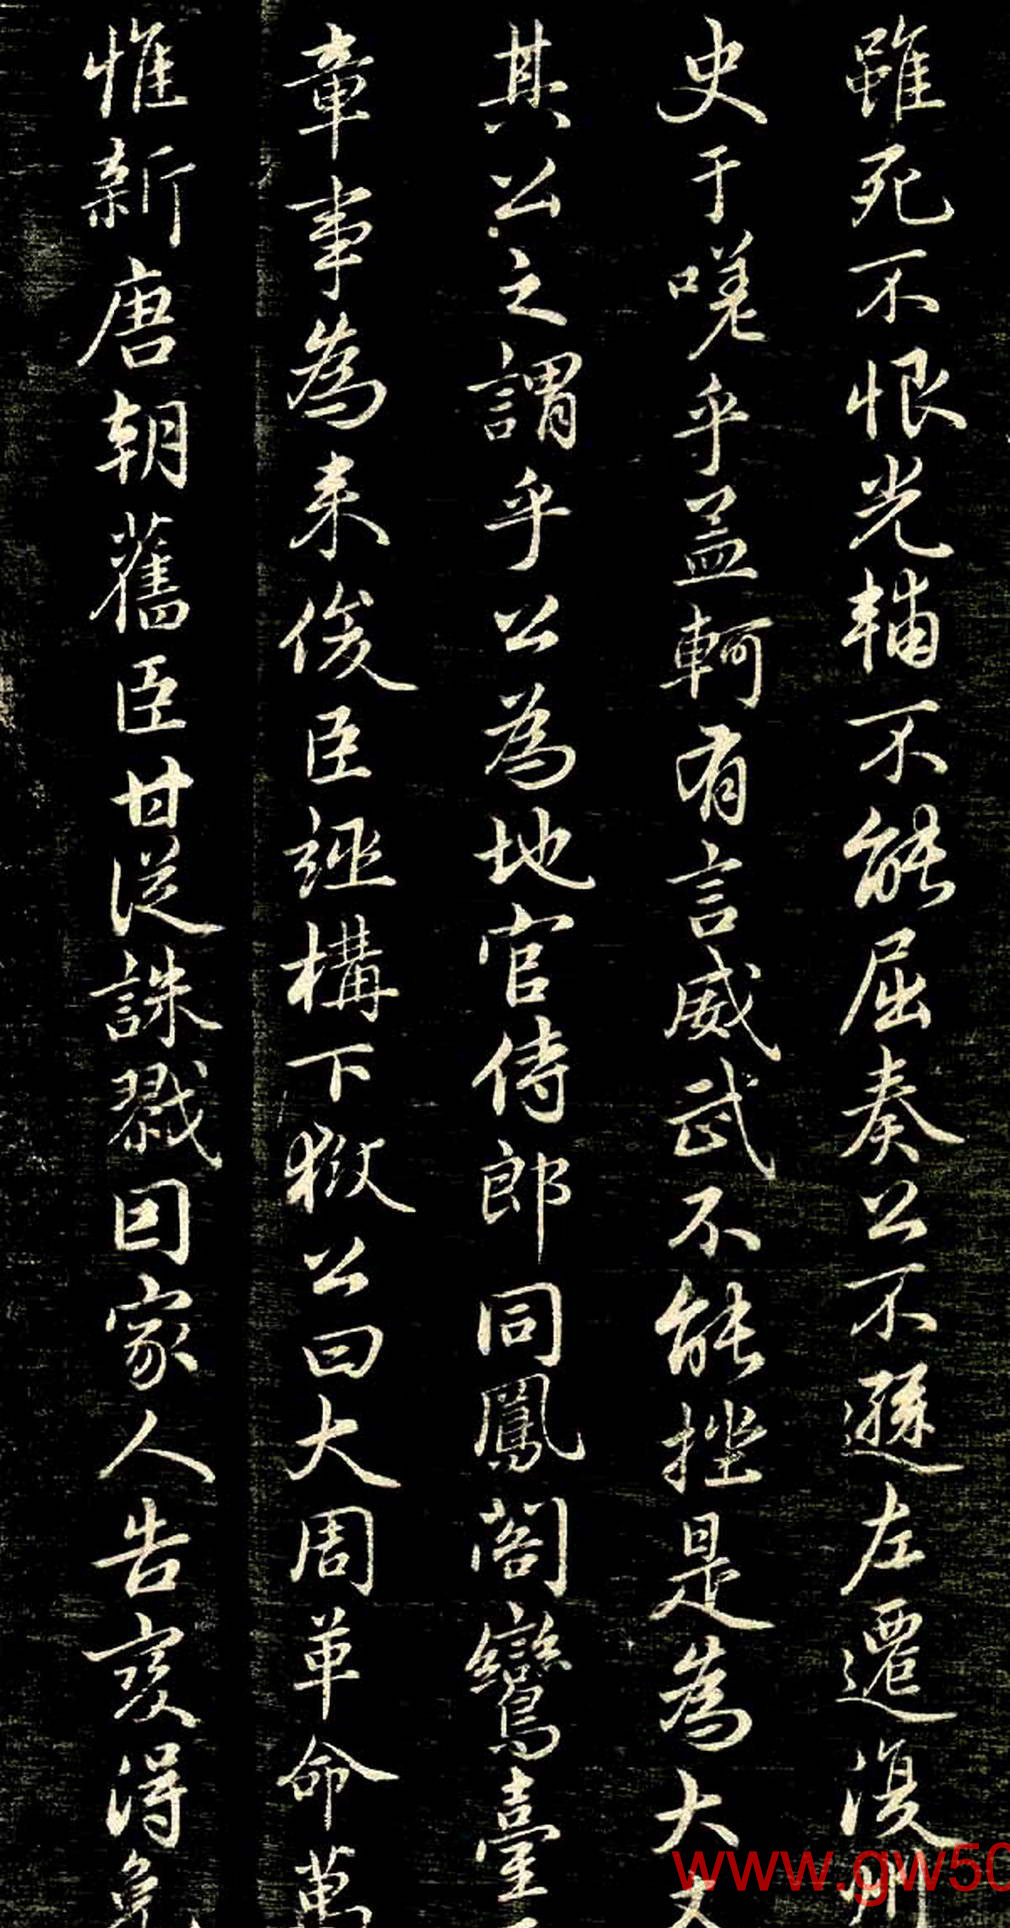 雖死不恨光輔不能屈奏公不遜左遷復州
史于嗟乎孟軻有言威武不能挫是為大丈
其公之謂乎公為地官侍郎同鳳閣鸞臺
章事為来俊臣誣構下獄公曰大周革命萬
惟新唐朝舊臣甘從誅戮因家人告變得免
www.gw50